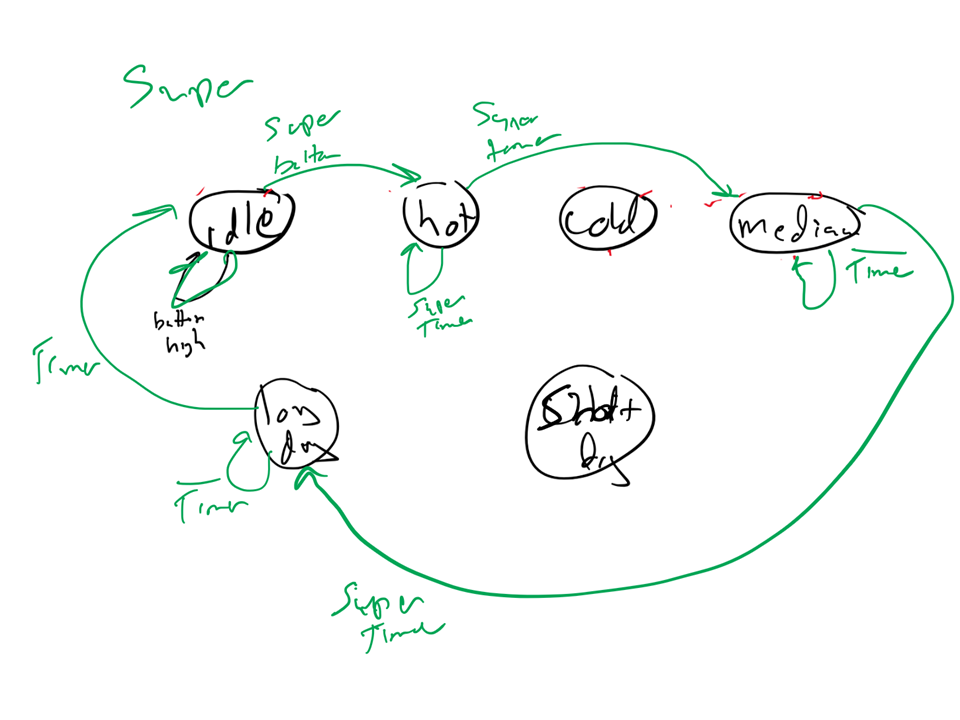 Super
Super
button
Super
timer
idle
hot
cold
median
Time
button
high
Super
Timer
Timer
long
dry
Short
Dry
Timer
Super
Timer